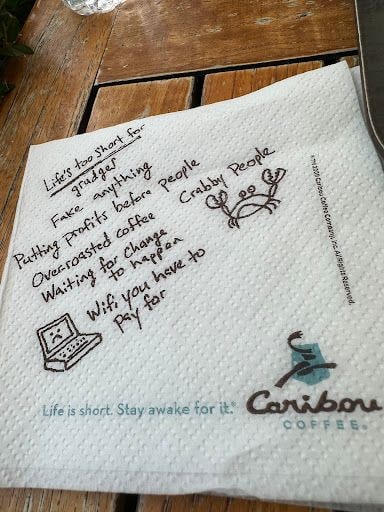 Life's too short for
grudges
Fake anything
Putting profits before people
Crabby People
Over-roasted coffee
Waiting for change
to happen
Wifi you have to
pay for
Life is short. Stay awake for it.®
Caribou
COFFEE®
Caribou Coffee Company, Inc. All Rights Reserved.